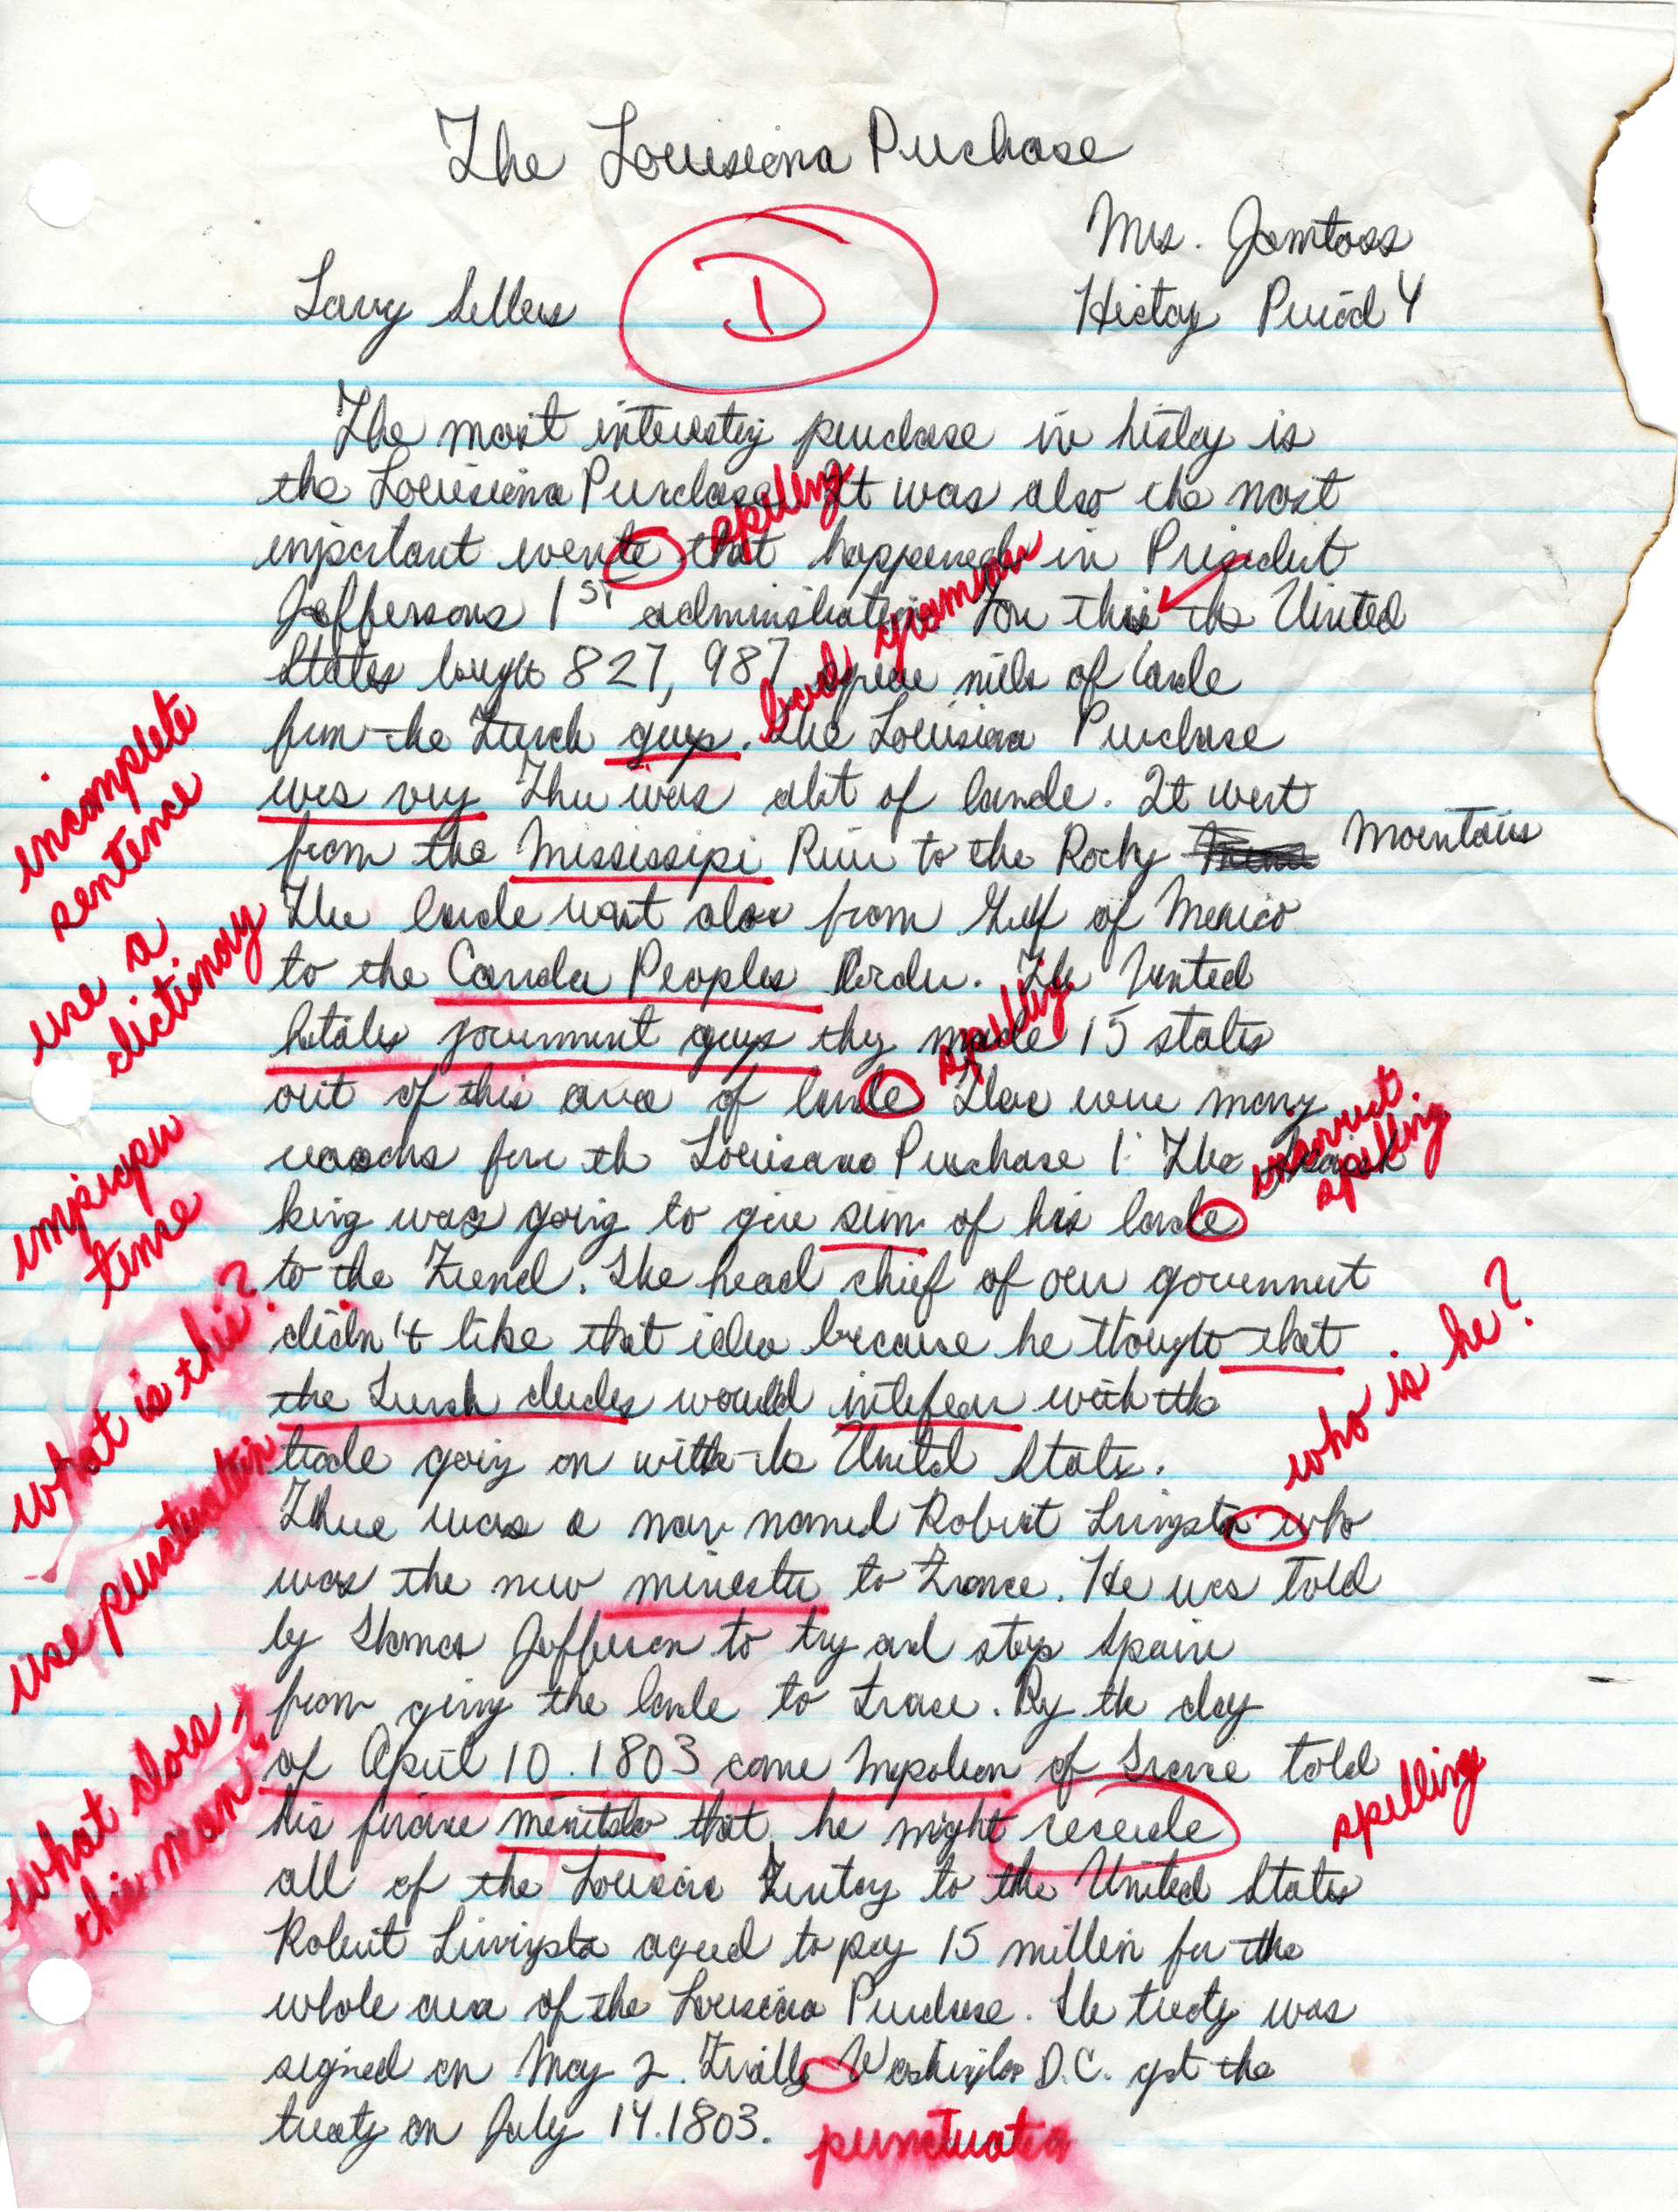 The Louisiana Purchase
Mrs. Jamtoss
Larry Sellers
D
History Period 4
The most interesting purchase in history is
the Louisiana Purchase. It was also the most
spelling
important evente that happened in President
Jeffersons 1st administration For this the United
bad grammar
States bought 827,987 square miles of lande
from the French guys. The Louisiana Purchase
was very Ther was alot of lande. It went
incomplete
sentence
from the Mississipi River to the Rocky Mountains
The lande went also from Gulf of Mexico
use a
dictionary
to the Canda Peoples Border. The United
States government guys they made 15 states
spelling
out of this area of lande Ther were many
reasons for the Louisana Purchase 1. The
incorrect
spelling
king was going to give sum of his lande
tense
to the French. The head chief of our government
didn't like that idea because he thought that
what is this?
the French dudes would intefear with the
who is he?
trade going on with the United States.
use punctuation
There was a man named Robert Livingsto who
was the new minester to France. He was told
by Thomas Jefferson to try and stop Spain
from giving the lande to France. By the day
of April 10. 1803 came Napoleon of France told
what does
this mean?
his finance that he might
spelling
all of the Louisiana Territory to the United States
Robert Livingsto agreed to pay 15 million for the
whole area of the Louisiana Purchase. The treaty was
signed on May 2. Finally Washington D.C. got the
treaty on July 14.1803.
punctuation